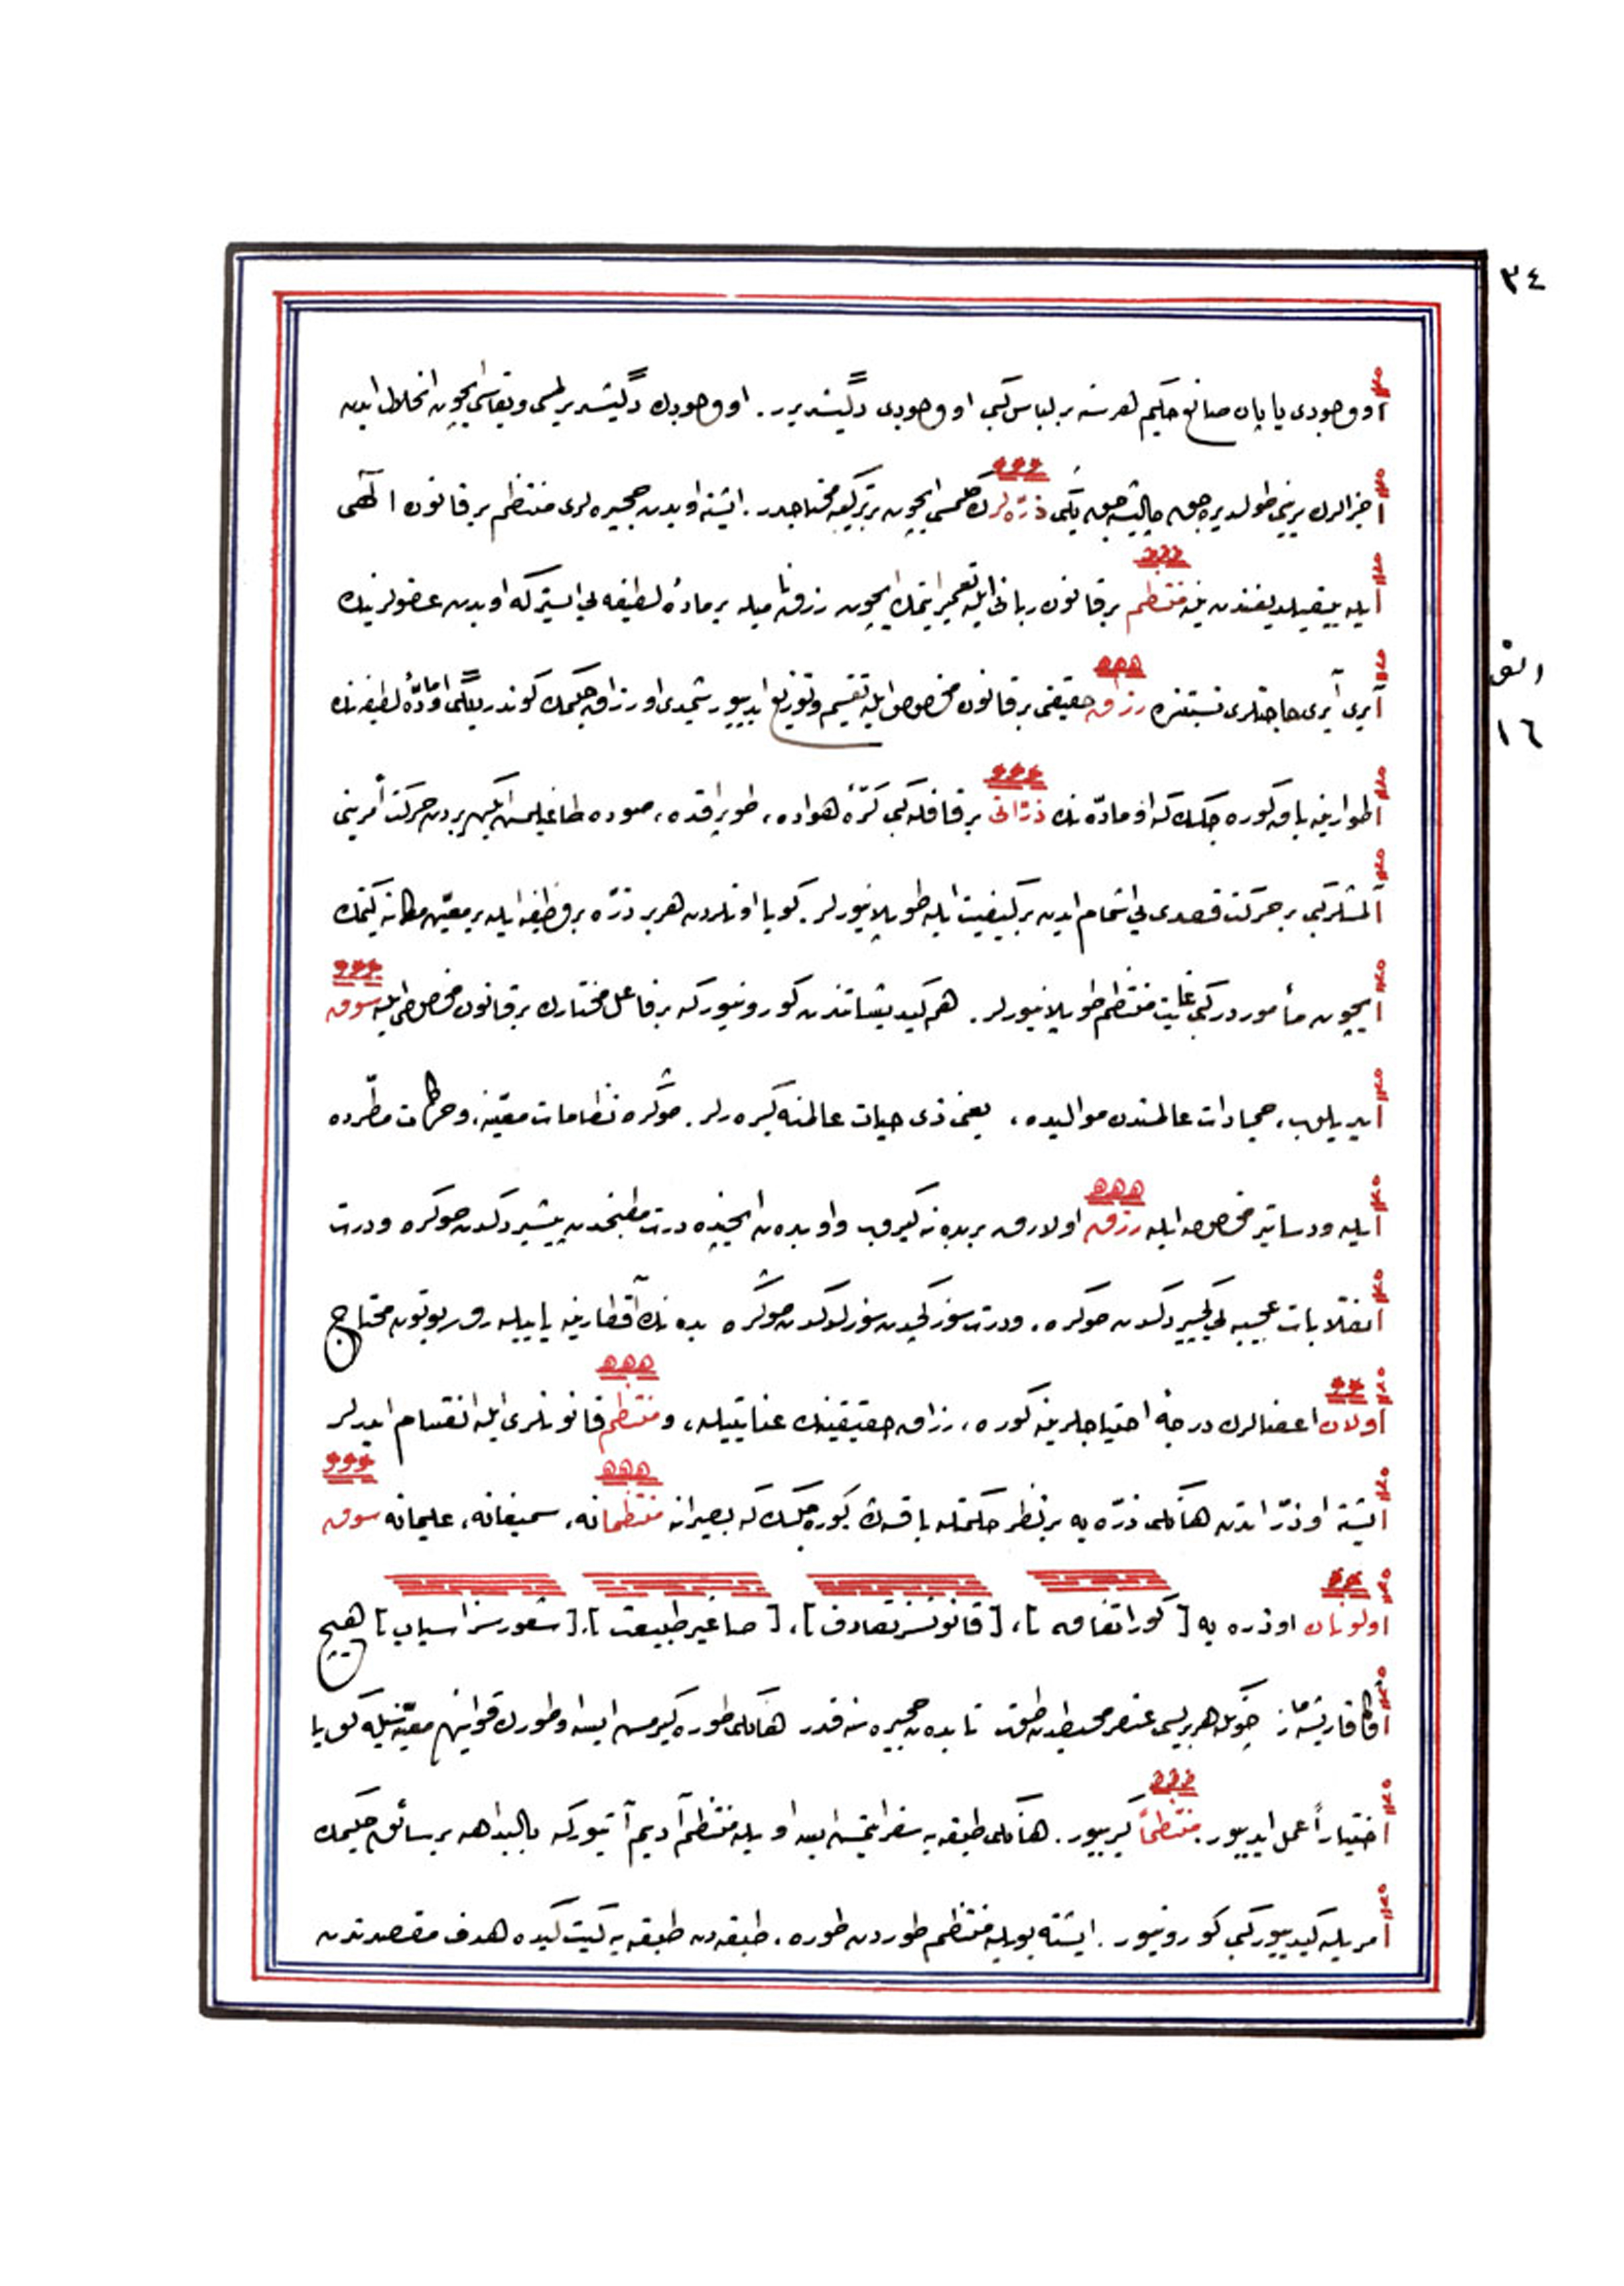 ٣٤
او وجودی یاپان صانع حکیم هر سنه بر لباس کبی او وجودی دگیشدیرر. او وجودك دگیشدیرلمسی و بقاسی ایچون انحلال ایدن
جزالرك یرینی طولدیره‌جق چالیشه‌جق یکی ذرّه‌لرك گلمسی ایچون بر ترکیبه محتاجدر. ایشته او بدن حجیره‌لری منتظم بر قانون الٓهی
ایله ییقیلدیغندن ینه منتظم بر قانون ربانی ایله تعمیر ایتمك ایچون رزق نامیله بر مادهٔ لطیفه‌یی ایستر که او بدن عضولرینك
آیری آیری حاجتلری نسبتنده رزاق حقیقی بر قانون مخصوص ایله تقسیم و توزیع ایدییور شیمدی او رزاق حکیمك کوندردیگی او مادّهٔ لطیفه‌نك
الف
١٦
اطوارینه باق کوره‌جکسك که او مادّه‌نك ذرّاتی بر قافله کبی کرّهٔ هواده، طوپراقده، صوده طاغیلمش ایکن بردن حرکت أمرینی
آلمشلر کبی بر حرکت قصدی‌یی اشمام ایدن بر کیفیت ایله طوپلانیورلر. کویا اونلردن هر بر ذرّه بر وظیفه ایله بر معیّن مکانه کیتمك
ایچون مأموردر کبی غایت منتظم طوپلانیورلر. هم کیدیشاتندن کورونیور که بر فاعل مختارك بر قانون مخصوصی ایله سوق
ایدیلوب، جمادات عالمندن موالیده، یعنی ذی حیات عالمنه کیره‌رلر. صوکره نظامات معیّنه، و حرکات مطّرده
ایله و دساتیر مخصوصه ایله رزق اولارق بر بدنه کیروب و او بدن ایچنده درت مطبخده پیشیردکدن صوکره و درت
انقلابات عجیبه‌یی کچیردکدن صوکره، و درت سوزگچدن سوزلدکدن صوکره بدنك آقطارینه یاییله‌رق بوتون محتاج
اولان اعضالرك درجهٔ احتیاجلرینه کوره، رزاق حقیقینك عنایتیله، و منتظم قانونلری ایله انقسام ایدرلر
ایشته او ذرّاتدن هانکی ذرّه‌یه بر نظر حکمتله باقسه‌ك کوره‌جکسك که بصیرانه منتظمانه، سمیعانه، علیمانه سوق
اولونان او ذره‌یه [ کور اتفاق ]، [ قانونسز تصادف ]، [ صاغیر طبیعت ]، [ شعورسز اسباب ] هیچ
اوکا قاریشه‌ماز چونکه هر بریسی عنصر محیطدن طوت تا بدن حجیره‌سنه قدر هانکی طوره کیرمش ایسه او طورك قوانین معیّنه‌سیله کویا
اختیاراً عمل ایدییور. منتظماً کیرییور. هانکی طبقه‌یه سفر ایتمش ایسه اویله منتظم آدیم آتییور که بالبداهه بر سائق حکیمك
امریله کیدییور کبی کورونیور. ایشته بویله منتظم طوردن طوره، طبقه‌دن طبقه‌یه کیت کیده هدف مقصدندن